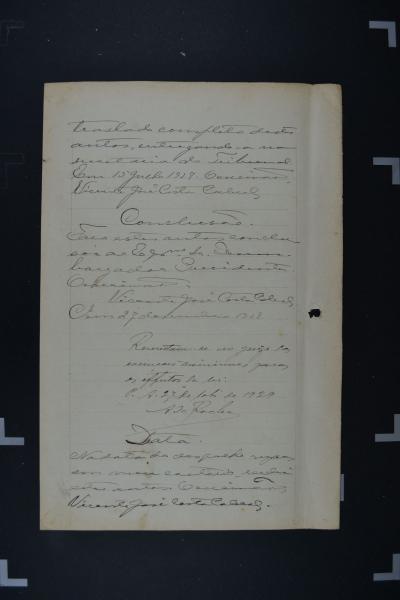 traslado completo destes
autos, entregando-a na
secretaria do Tribunal
Em 15 Julho 1929.
Vicente José Costa Cabral
Conclusão.
Faço estes autos conclu-
sos ao Exmo. Sr. Desem-
bargador Presidente
Vicente José Costa Cabral
Em 27 de 192
Remettam-se ao juizo das
para
os effeitos de lei.
P. A. 27 de de 1929
A. da Rocha
Data.
Na data do despacho supra
em meu cartorio recebi
estes autos
Vicente José Costa Cabral.